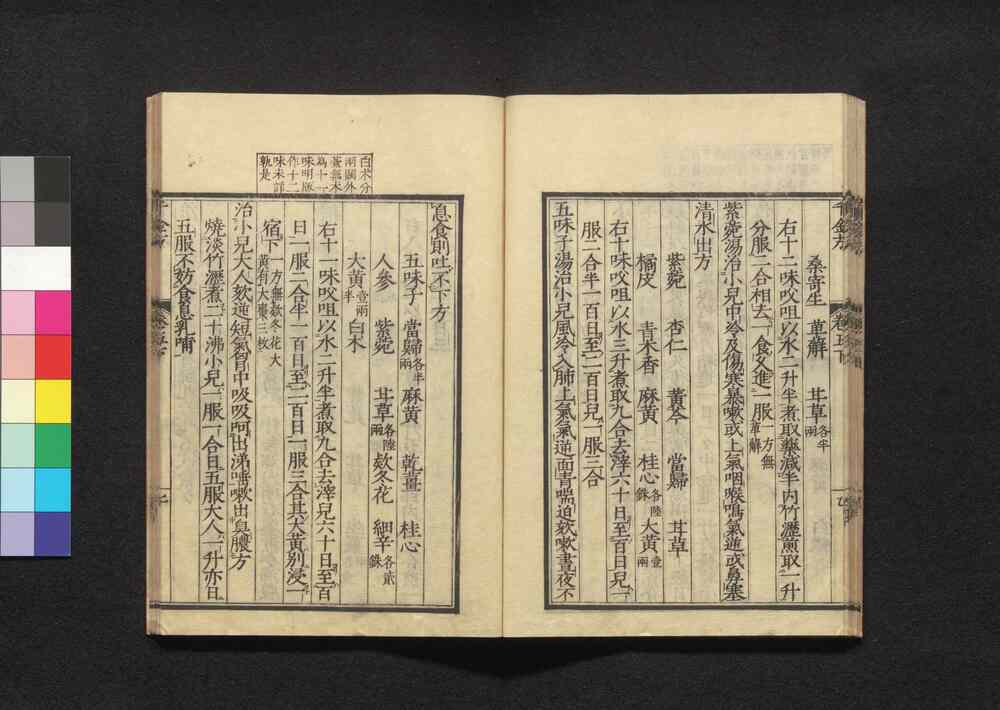 桑寄生 萆薢 甘草各半兩
右十二味㕮咀以水二升半煮取藥減半内竹瀝煎取一升
分服二合相去一食久進一服一方無萆薢
紫菀湯治小兒中冷及傷寒暴嗽或上氣咽喉鳴氣逆或鼻塞
清水出方
紫菀 杏仁 黃芩 當歸 甘草
橘皮 青木香 麻黃 桂心各陸銖 大黃壹兩
右十味㕮咀以水三升煮取九合去滓六十日至百日兒一
服二合半一百日至二百日兒一服三合
五味子湯治小兒風冷入肺上氣氣逆面青喘迫欬嗽晝夜不
息食則吐不下方
五味子 當歸各半兩 麻黃 乾薑 桂心
人參 紫菀 甘草各陸兩 欵冬花 細辛各貳銖
大黃壹兩半 白朮
右十一味㕮咀以水二升半煮取九合去滓兒六十日至百
日一服二合半一百日至二百日一服三合其大黃別浸一
宿下一方無欵冬花大黃有大棗三枚
治小兒大人欬逆短氣胷中吸吸呵出涕唾嗽出臭膿方
燒淡竹瀝煮二十沸小兒一服一合日五服大人一升亦日
五服不妨食息乳哺
白朮分
兩圈外
蒼無朮
爲十一
味明版
作十二
味未詳
孰是